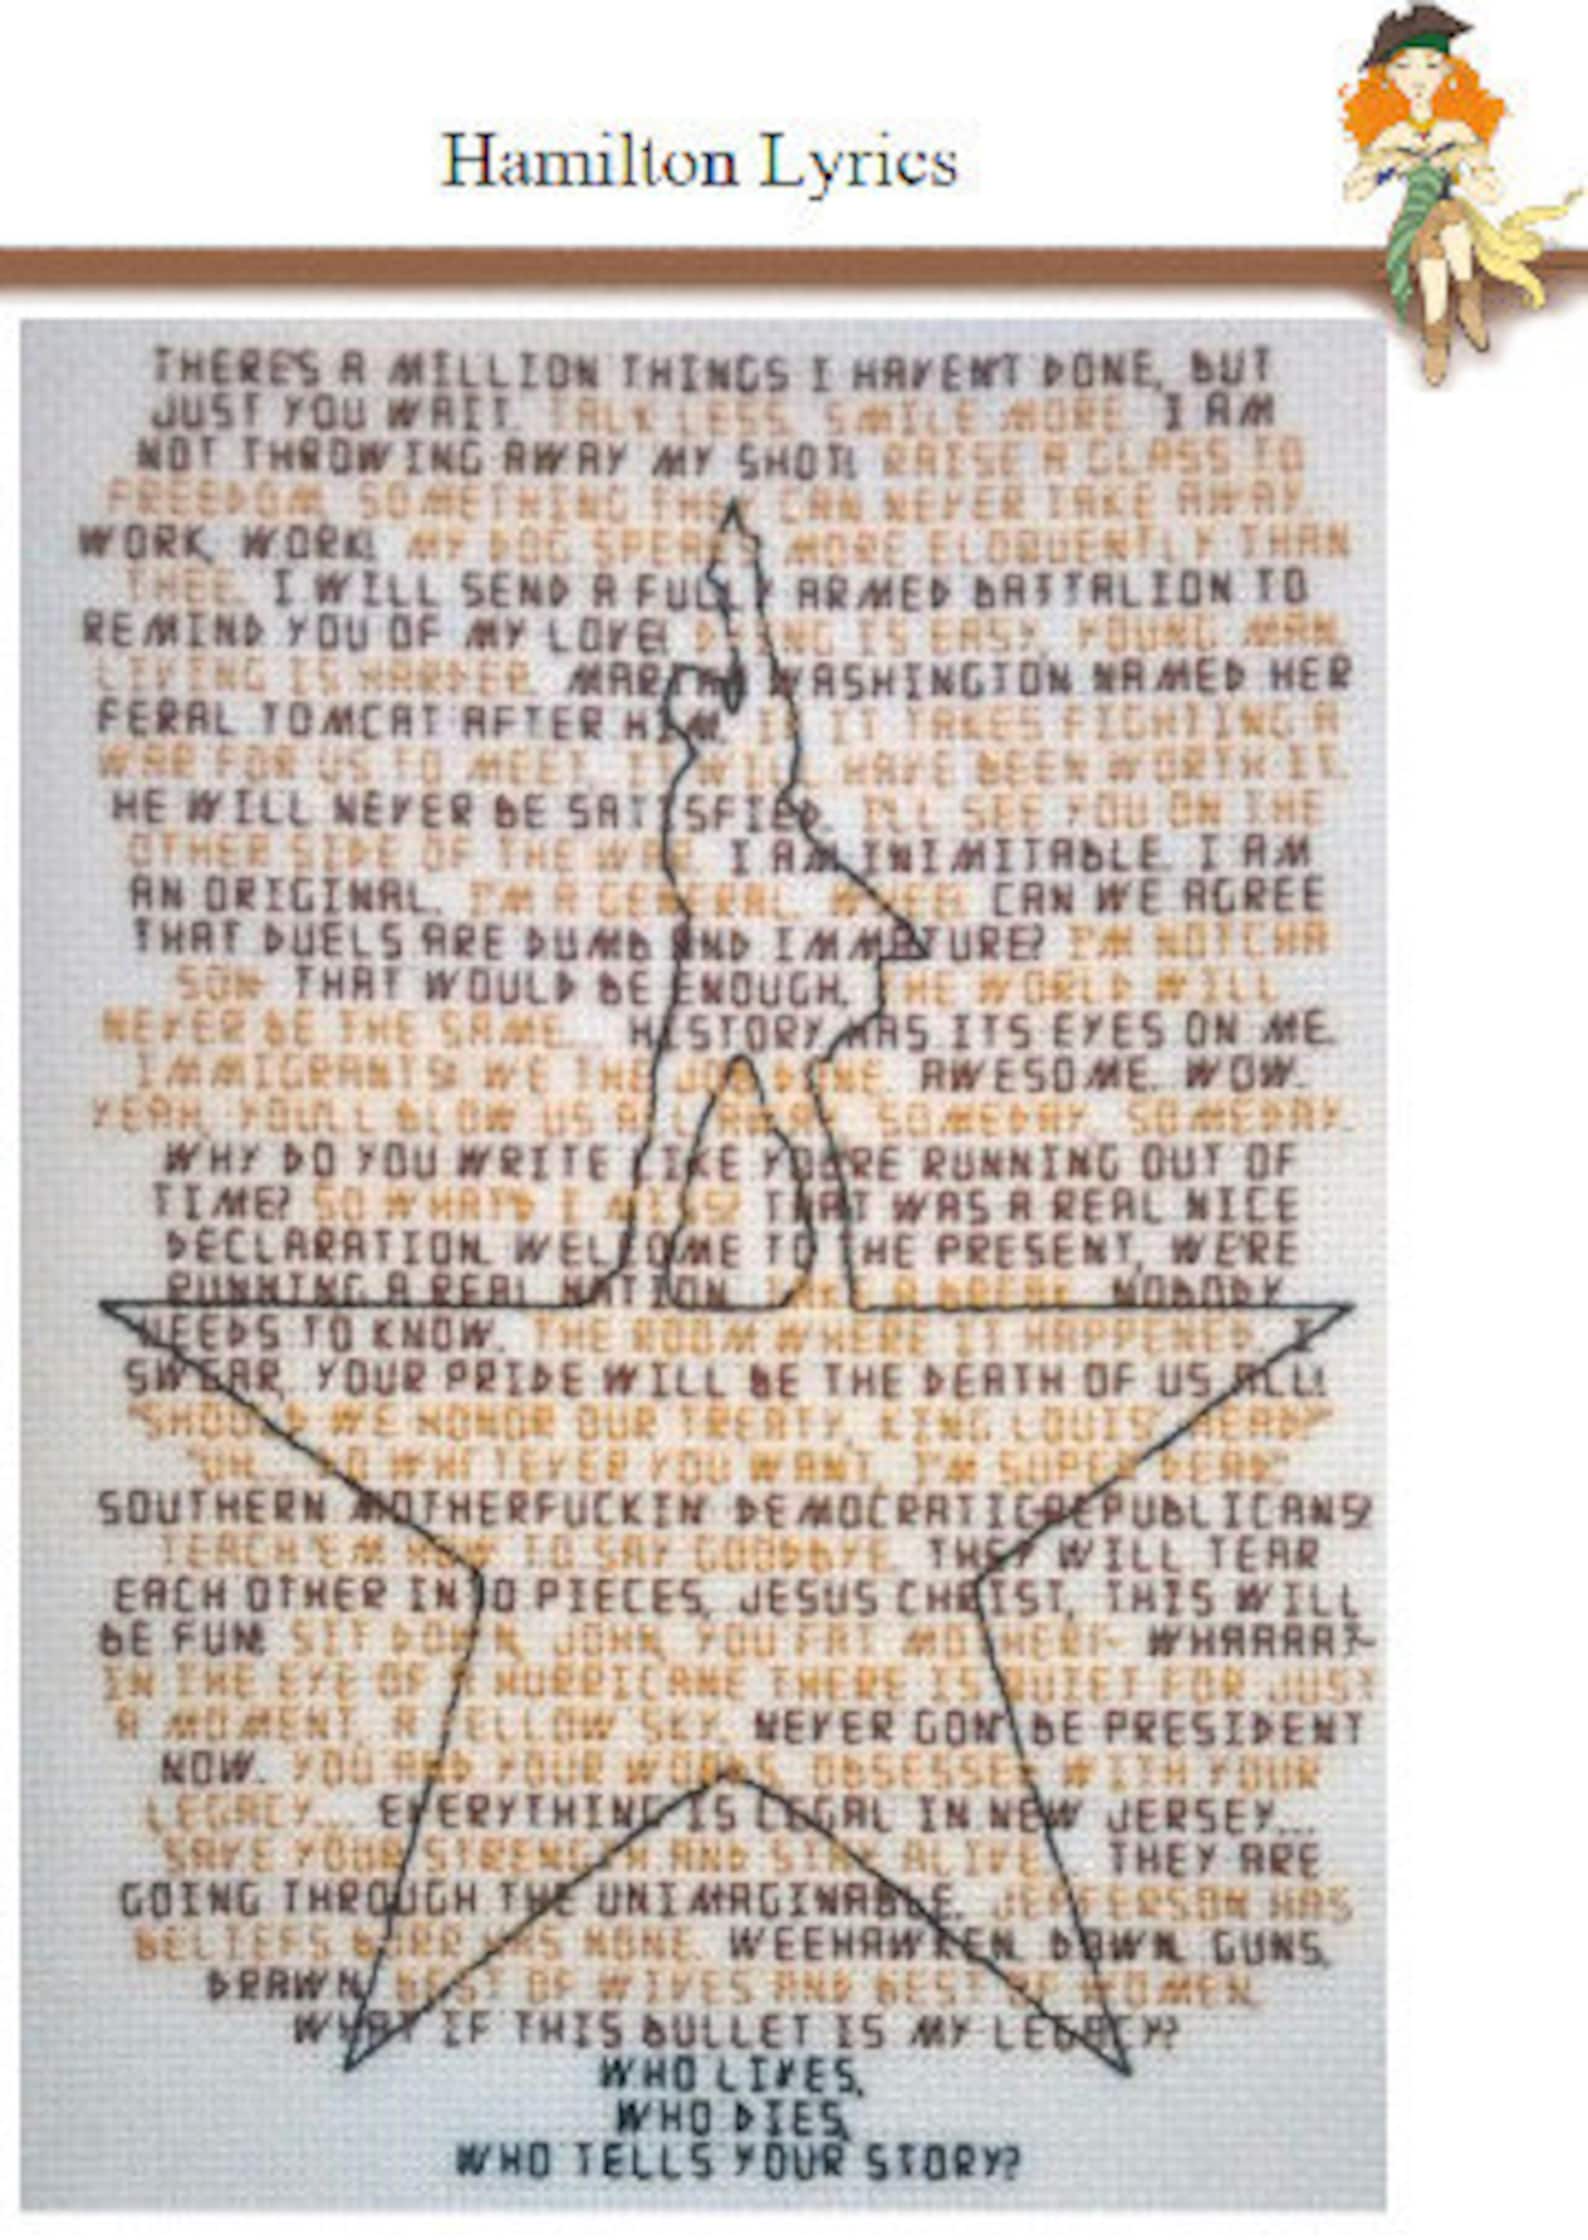 Hamilton Lyrics
THERE'S A MILLION THINGS I HAVEN'T DONE, BUT
JUST YOU WAIT. TALK LESS. SMILE MORE. I AM
NOT THROWING AWAY MY SHOT! RAISE A GLASS TO
FREEDOM. SOMETHING THEY CAN NEVER TAKE AWAY.
WORK, WORK! MY DOG SPEAKS MORE ELOQUENTLY THAN
THEE. I WILL SEND A FULLY ARMED BATTALION TO
REMIND YOU OF MY LOVE! DYING IS EASY, YOUNG MAN.
LIVING IS HARDER. MARTHA WASHINGTON NAMED HER
FERAL TOMCAT AFTER HIM. IF IT TAKES FIGHTING A
WAR FOR US TO MEET, IT WILL HAVE BEEN WORTH IT.
HE WILL NEVER BE SATISFIED. I'LL SEE YOU ON THE
OTHER SIDE OF THE WAR. I AM INIMITABLE. I AM
AN ORIGINAL. I'M A GENERAL. WHEE! CAN WE AGREE
THAT DUELS ARE DUMB AND IMMATURE? I'M NOTCHA
SON. THAT WOULD BE ENOUGH. THE WORLD WILL
NEVER BE THE SAME... HISTORY HAS ITS EYES ON ME.
IMMIGRANTS! WE THE JOB DONE. AWESOME. WOW.
YEAH, YOU'LL BLOW US ALL AWAY. SOMEDAY, SOMEDAY.
WHY DO YOU WRITE LIKE YOU'RE RUNNING OUT OF
TIME? SO WHAT'D I MISS? THAT WAS A REAL NICE
DECLARATION. WELCOME TO THE PRESENT, WE'RE
RUNNING A REAL NATION. TAKE A BREAK. NOBODY
NEEDS TO KNOW. THE ROOM WHERE IT HAPPENED. I
SWEAR, YOUR PRIDE WILL BE THE DEATH OF US ALL!
"SHOULD WE HONOR OUR TREATY, KING LOUIS' HEAD?"
"UH... DO WHATEVER YOU WANT, I'M SUPER DEAD."
SOUTHERN MOTHERFUCKIN' DEMOCRATIC-REPUBLICANS!
TEACH 'EM HOW TO SAY GOODBYE. THEY WILL TEAR
EACH OTHER INTO PIECES, JESUS CHRIST, THIS WILL
BE FUN! SIT DOWN, JOHN, YOU FAT MOTHER!- WHAAAA?-
IN THE EYE OF A HURRICANE THERE IS QUIET FOR JUST
A MOMENT. A YELLOW SKY. NEVER GON' BE PRESIDENT
NOW. YOU AND YOUR WORDS, OBSESSED WITH YOUR
LEGACY... EVERYTHING IS LEGAL IN NEW JERSEY...
SAVE YOUR STRENGTH AND STAY ALIVE... THEY ARE
GOING THROUGH THE UNIMAGINABLE. JEFFERSON HAS
BELIEFS BURR HAS NONE. WEEHAWKEN. DAWN. GUNS,
DRAWN. BEST OF WIVES AND BEST OF WOMEN.
WHAT IF THIS BULLET IS MY LEGACY?
WHO LIVES,
WHO DIES,
WHO TELLS YOUR STORY?